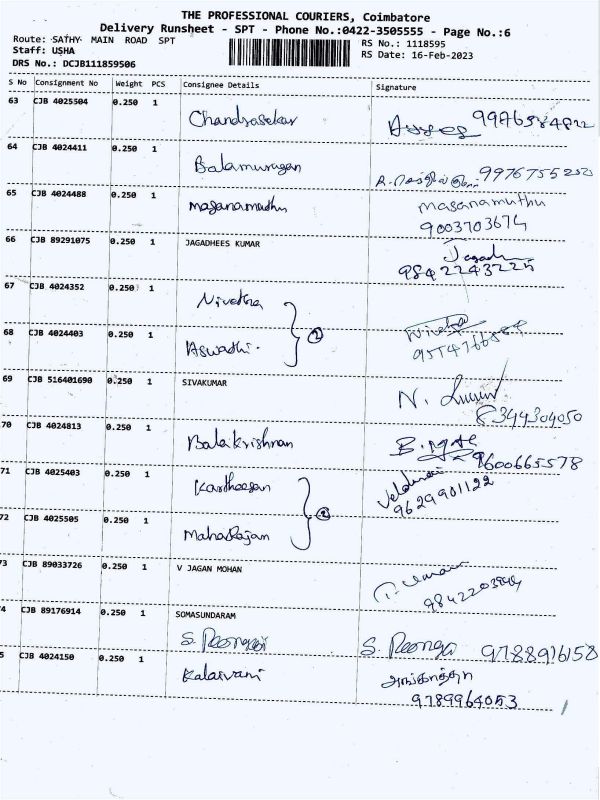 THE PROFESSIONAL COURIERS, Coimbatore
Delivery Runsheet - SPT - Phone No.:0422-3505555 - Page No.:6
Route: SATHY MAIN ROAD SPT
RS No.: 1118595
Staff: USHA
RS Date: 16-Feb-2023
DRS No.: DCJB111859506
S No Consignment No Weight PCS Consignee Details Signature
63 CJB 4025504 0.250 1 Chandrasekar
64 CJB 4024411 0.250 1 Balamurugan 9976755250
65 CJB 4024488 0.250 1 Masanamuthu Masanamuthu
9003703674
66 CJB 89291075 0.250 1 JAGADHEES KUMAR
9842243225
67 CJB 4024352 0.250 1 Nivetha
68 CJB 4024403 0.250 1 Aswathi. 2 Nivetha
69 CJB 516401690 0.250 1 SIVAKUMAR N.
8344304050
70 CJB 4024813 0.250 1 Balakrishnan
9600665578
71 CJB 4025403 0.250 1 Kartheesan
9629901122
72 CJB 4025505 0.250 1 Maharajan 2
73 CJB 89033726 0.250 1 V JAGAN MOHAN
74 CJB 89176914 0.250 1 SOMASUNDARAM
9788916158
75 CJB 4024150 0.250 1 Kalaivani
9789964053